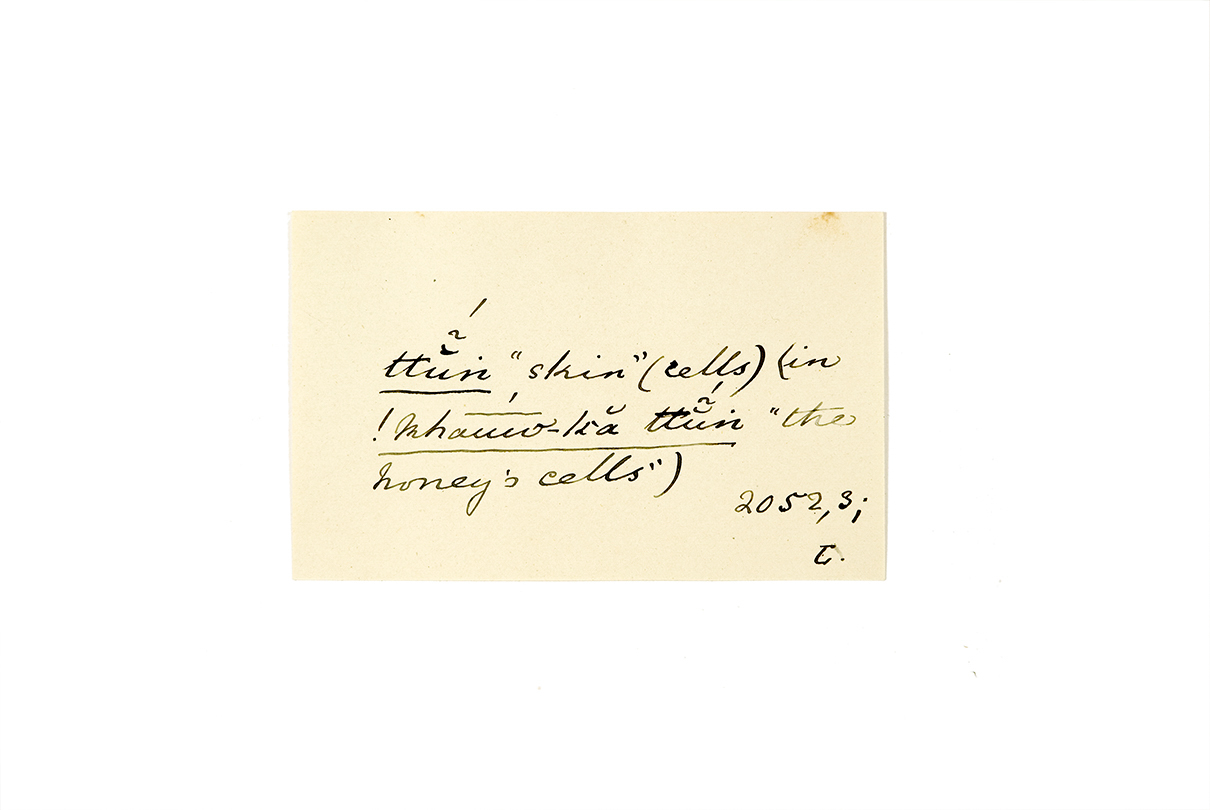 ttŭ̃ín "skin" (cells) (in
!khā́uw̄-kă ttŭ̃ín "the
honey's cells")
2052,3;
T.